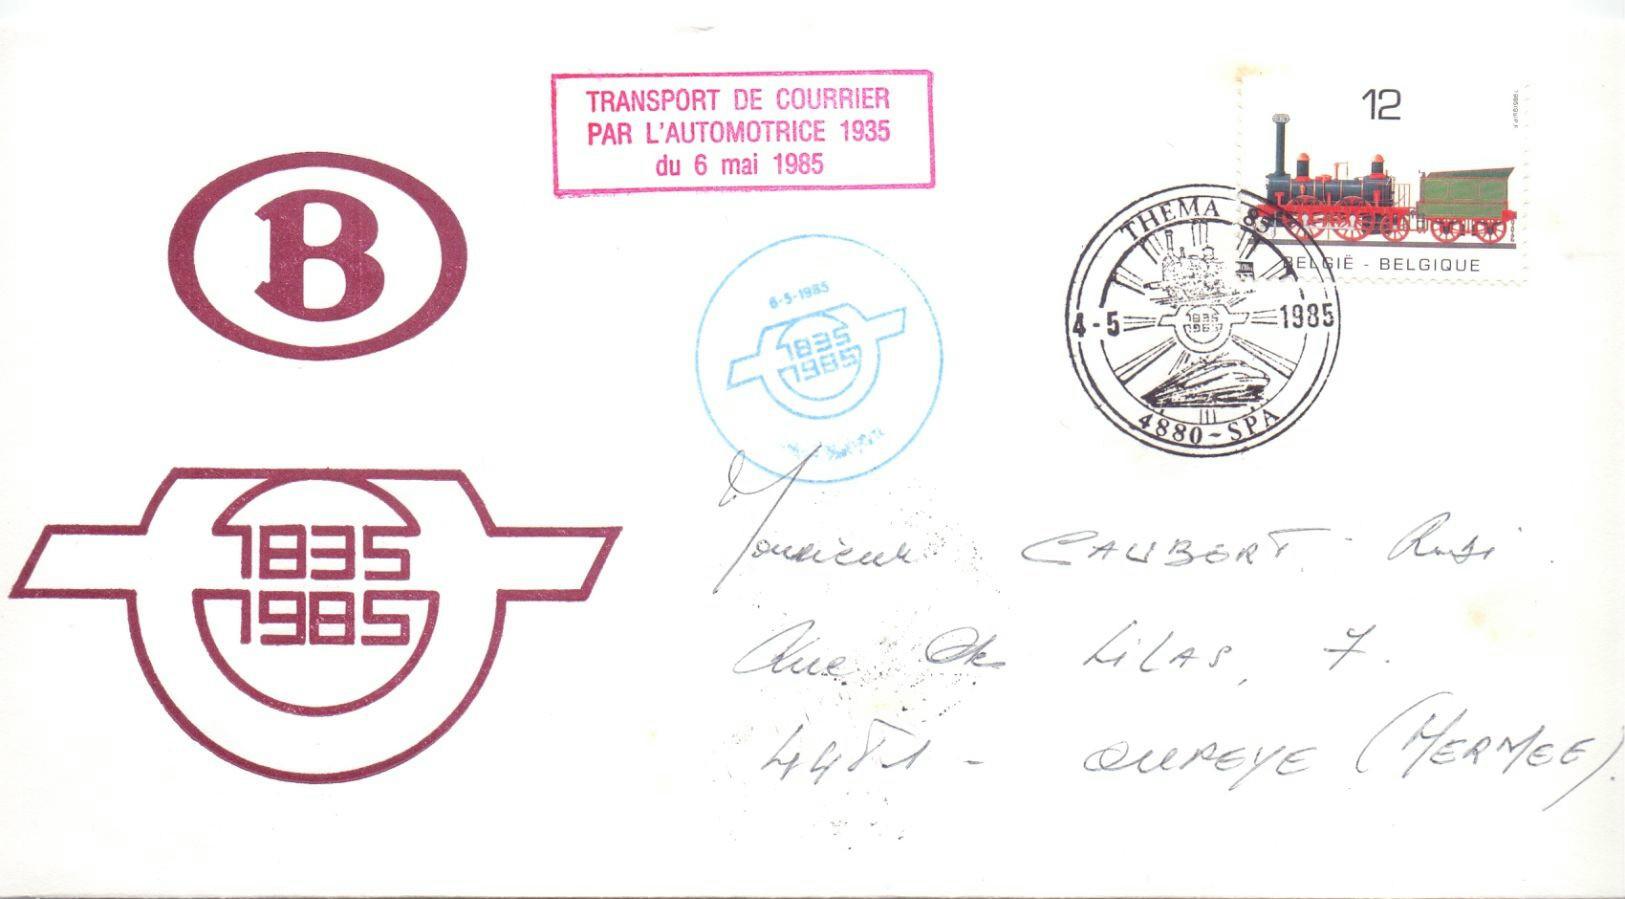 TRANSPORT DE COURRIER
PAR L'AUTOMOTRICE 1935
du 6 mai 1985
12
BELGIË - BELGIQUE
B
THEMA 85
4-5 1985
1835
1985
4880-SPA
6-5-1985
1835
1985
1835
1985
Monsieur CAUBERT
Rue de LiLAS, 7.
4481 - OUPEYE (HERMEE).